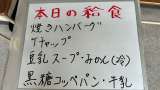 本日の給食
焼きハンバーグ
ケチャップ
豆乳スープ・みかん(冷)
黒糖コッペパン・牛乳